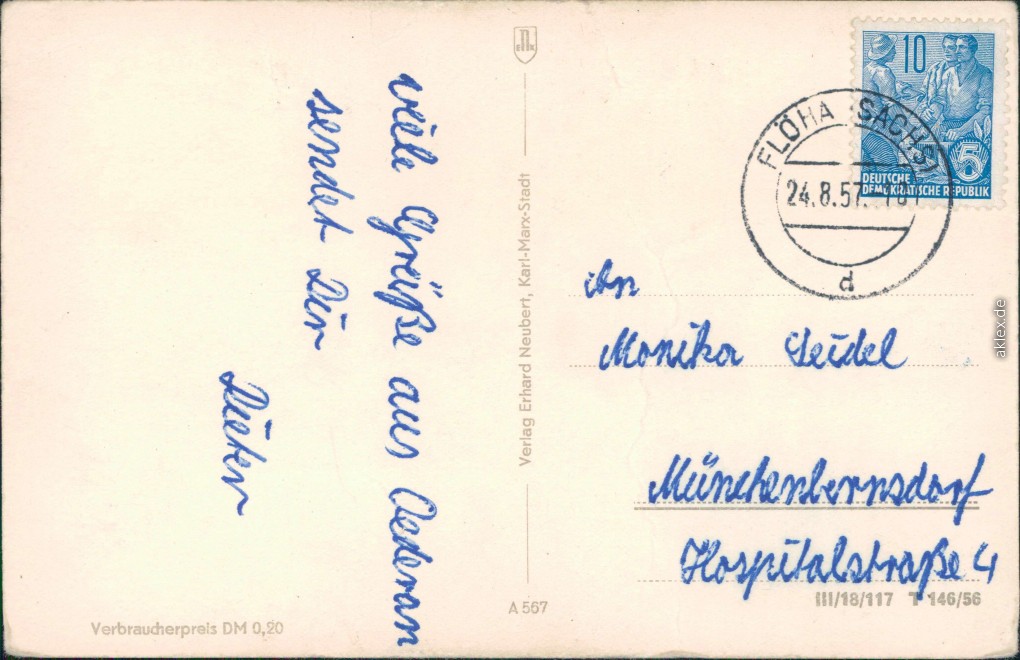 viele Grüße aus Oederan
sendet Dir
Dieter
Verbraucherpreis DM 0,20
Verlag Erhard Neubert, Karl-Marx-Stadt
A 567
10
5
DEUTSCHE
DEMOKRATISCHE REPUBLIK
FLÖHA (SACHS)
24.8.57.
d
An
Monika Seidel
Münchenbernsdorf
Hospitalstraße 4
III/18/117 T 146/56
aklex.de